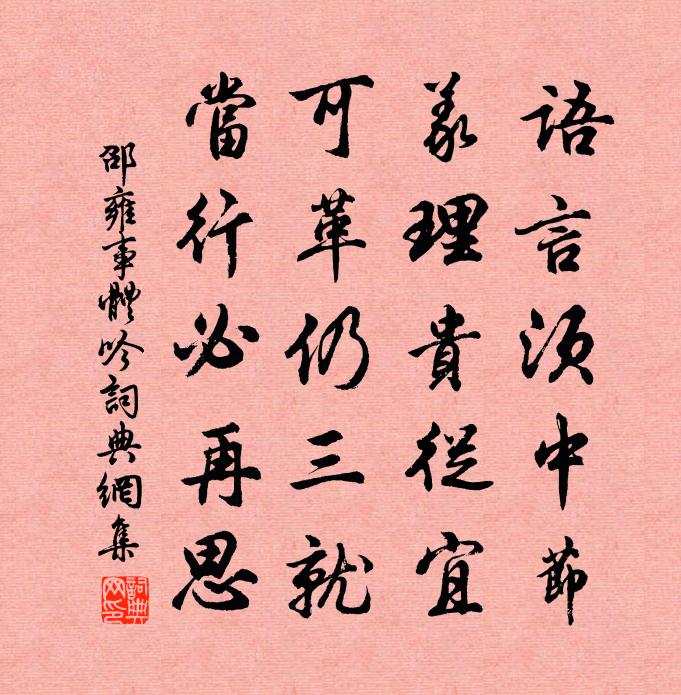 語言須中節
義理貴從宜
可革仍三就
當行必再思
邵雍事體吟詞典網集
詞典網印